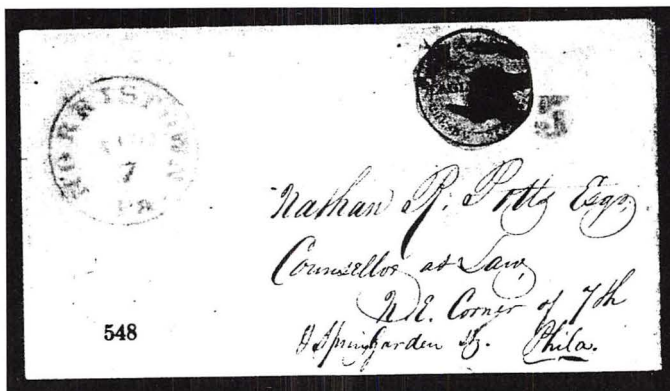 NORRISTOWN
7
PA
5
Nathan R. Potts Esqr.
Counsellor at Law,
N.E. Corner of 7th
& Spring Garden St. Phila.
548